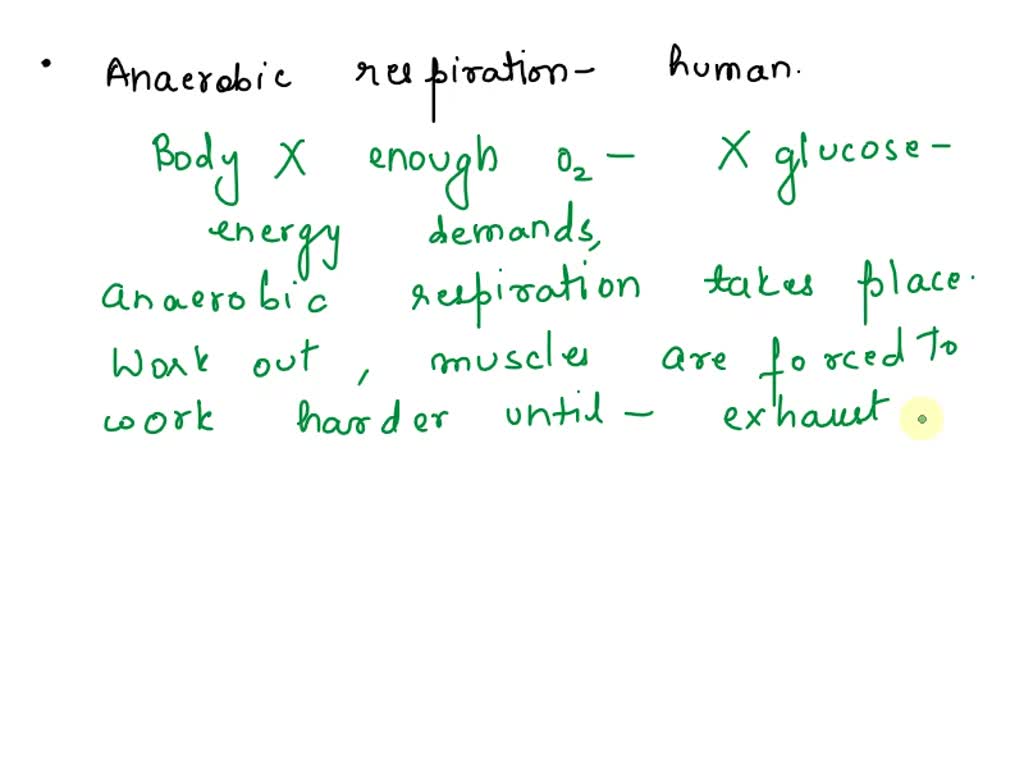 • Anaerobic respiration- human.
Body X enough O₂ - X glucose-
energy demands,
anaerobic respiration takes place.
Work out, muscles are forced to
work harder until - exhaust